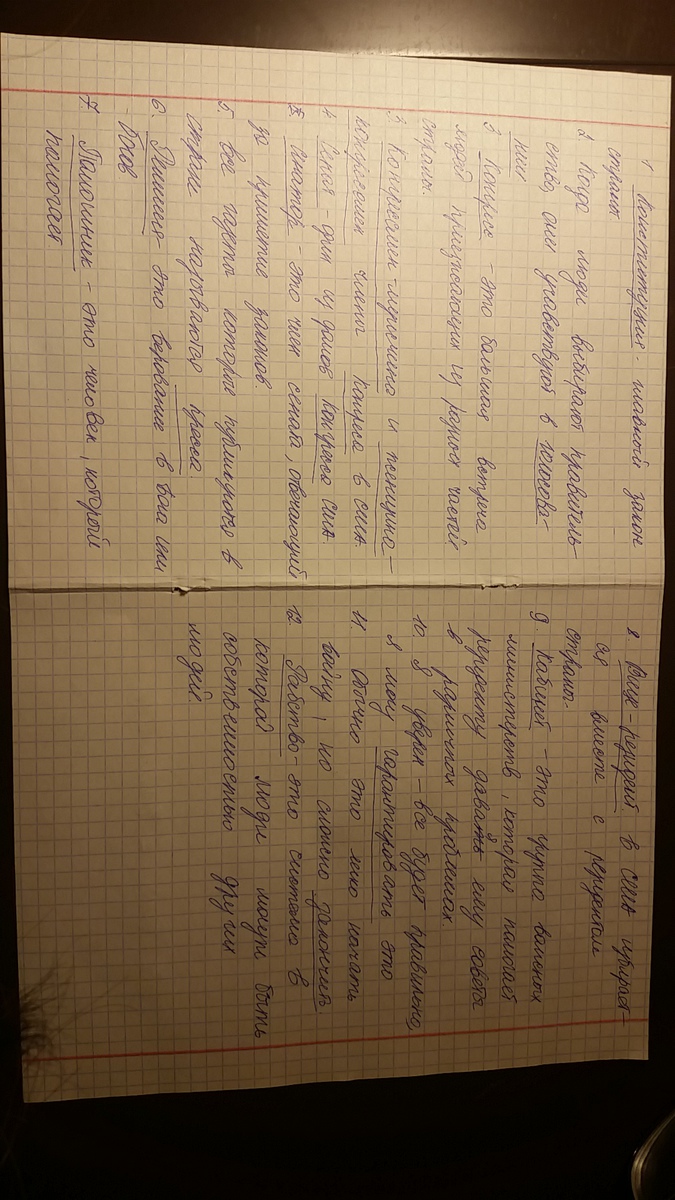 1 Конституция: главный закон
страны
2 Когда люди выбирают правитель-
ство, они учавствуют в голосова-
нии
3 Конгресс - это большая встреча
людей приезжающих из разных частей
страны.
3. Конгрессмен-мужчина и женщина-
конгрессмен члены Конгресса в США.
4. Сенат - один из домов Конгресса США.
Сенатор - это член сената, отвечающий
за принятие законов.
5. Все газеты которые публикуются в
стране называются пресса.
6. Религия - это верование в Бога или
Богов
7. Помощник - это человек, который
помогает
8. Вице-президент в США избирает-
ся вместе с президентом
страны.
9. Кабинет - это группа важных
министерств, которая помогает
президенту давая ему советы
в различных проблемах.
10. Я уверен - все будет правильно,
я могу гарантировать это
11. Обычно это легко начать
войну, но сложно закончить
12. Рабство - это система в
которой люди могут быть
собственностью других
людей.